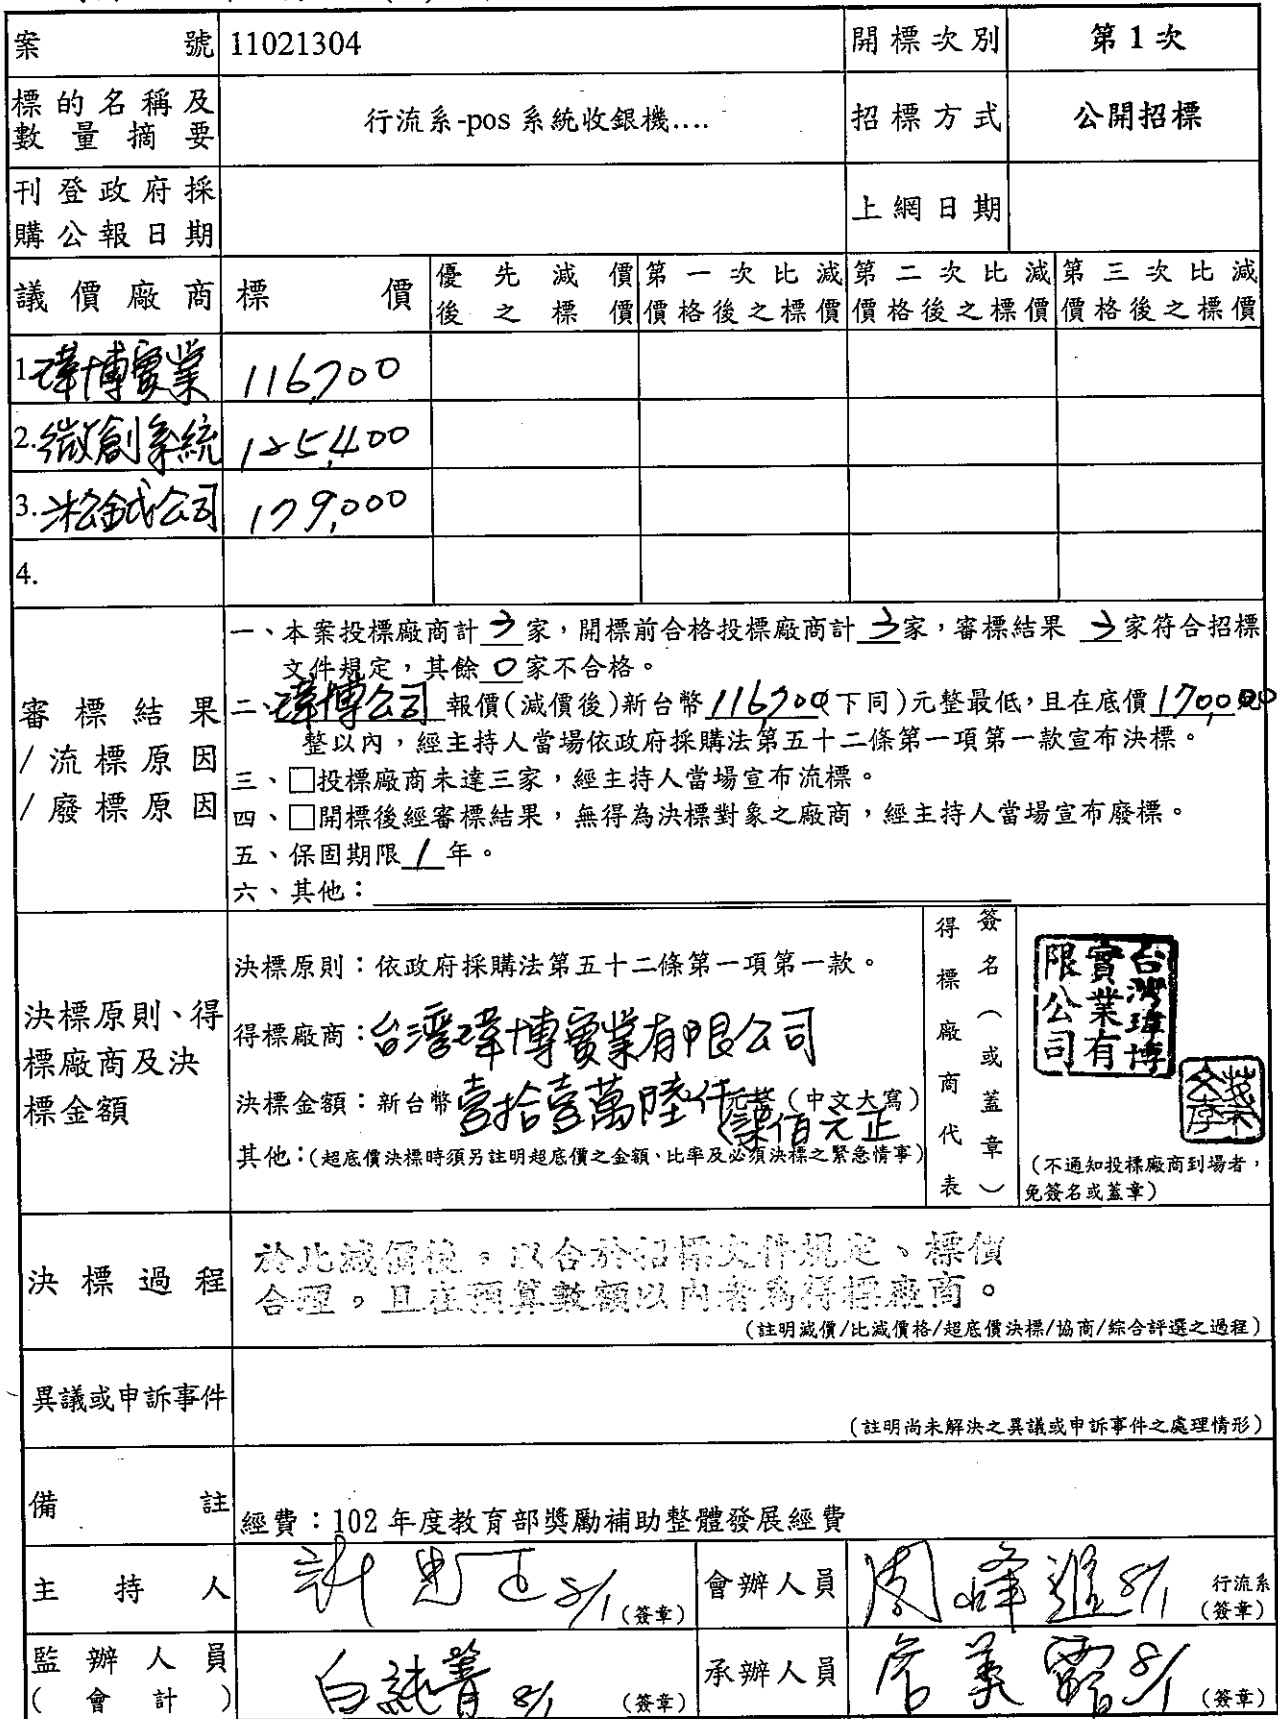 案號 11021304 開標次別 第1次
標的名稱及數量摘要 行流系-pos系統收銀機.... 招標方式 公開招標
刊登政府採購公報日期 上網日期
議價廠商 標價 優先減價後之標價 第一次比減價格後之標價 第二次比減價格後之標價 第三次比減價格後之標價
1.瑋博實業 116,700
2.微創系統 125,400
3.淞鉞公司 179,000
4.
審標結果/流標原因/廢標原因
一、本案投標廠商計3家,開標前合格投標廠商計3家,審標結果 3家符合招標
文件規定,其餘0家不合格。
二、瑋博公司 報價(減價後)新台幣116,700(下同)元整最低,且在底價
整以內,經主持人當場依政府採購法第五十二條第一項第一款宣布決標。
三、□投標廠商未達三家,經主持人當場宣布流標。
四、□開標後經審標結果,無得為決標對象之廠商,經主持人當場宣布廢標。
五、保固期限1年。
六、其他:
決標原則、得標廠商及決標金額
決標原則:依政府採購法第五十二條第一項第一款。
得標廠商:台灣瑋博實業有限公司
決標金額:新台幣壹拾壹萬陸仟柒佰元正 元整(中文大寫)
其他:(超底價決標時須另註明超底價之金額、比率及必須決標之緊急情事)
得標廠商代表簽名(或蓋章)
台灣瑋博實業有限公司
(不通知投標廠商到場者,
免簽名或蓋章)
決標過程
於比減價後,以合於招標文件規定、標價
合理,且在預算數額以內者為得標廠商。
(註明減價/比減價格/超底價決標/協商/綜合評選之過程)
異議或申訴事件
(註明尚未解決之異議或申訴事件之處理情形)
備註 經費:102年度教育部獎勵補助整體發展經費
主持人 8/1 (簽章) 會辦人員 周峰進 8/1 行流系(簽章)
監辦人員(會計) 白純菁 8/1 (簽章) 承辦人員 詹美霞 8/1 (簽章)